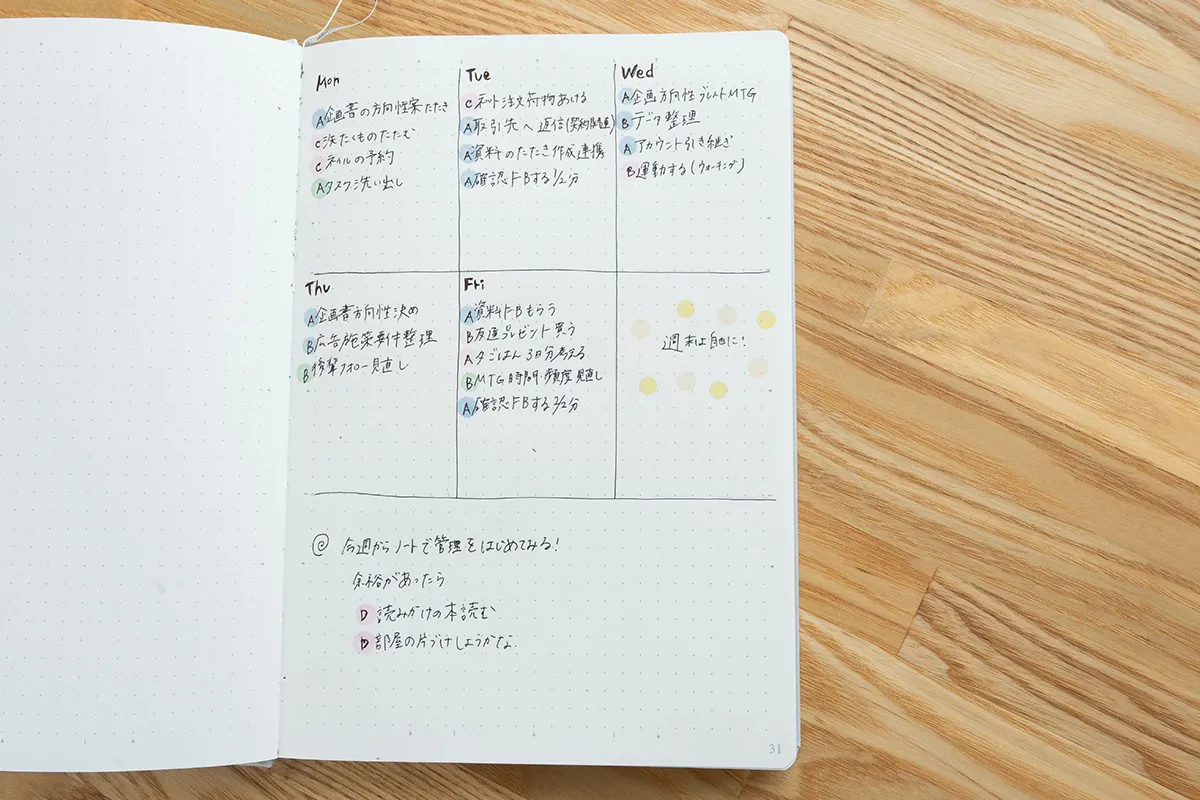 Mon
A 企画書の方向性案たたき
C 洗たくものたたむ
C ネイルの予約
A タスク洗い出し
Tue
C ネット注文荷物あける
A 取引先へ返信(契約関連)
A 資料のたたき作成連携
A 確認FBする1/2分
Wed
A 企画方向性ブレストMTG
B データ整理
A アカウント引き継ぎ
B 運動する(ウォーキング)
Thu
A 企画書方向性決め
B 広告施策要件整理
B 後輩フォロー見直し
Fri
A 資料FBもらう
B 友達プレゼント買う
A 夕ごはん3日分考える
B MTG時間・頻度見直し
A 確認FBする2/2分
週末は自由に!
@ 今週からノートで管理をはじめてみる!
余裕があったら
D 読みかけの本読む
D 部屋の片づけしようかな
31